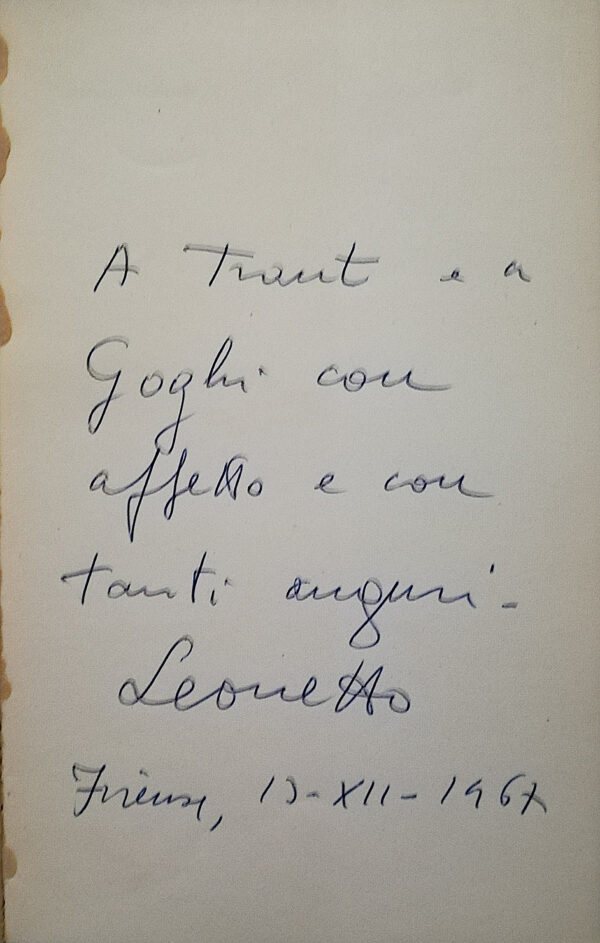 A Traut e a
Goghi con
affetto e con
tanti auguri-
Leonetto
Firenze, 13-XII-1967